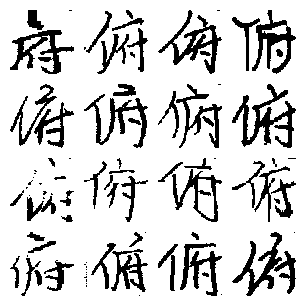 府俯俯俯
俯俯俯俯
俯俯俯俯
俯俯俯俯